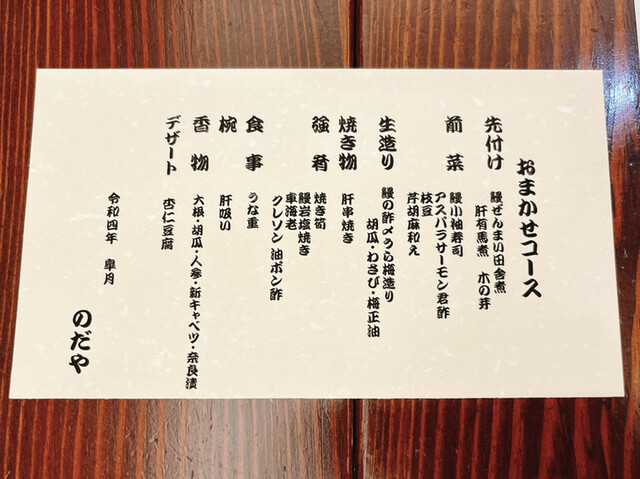 おまかせコース
先付け
鰻ぜんまい田舎煮
肝有馬煮 木の芽
前菜
鰻小袖寿司
アスパラサーモン君酢
枝豆
芹胡麻和え
生造り
鰻の酢〆うら梅造り
胡瓜・わさび・梅正油
焼き物
肝串焼き
強肴
焼き筍
鰻岩塩焼き
車海老
クレソン 油ポン酢
食事
うな重
椀
肝吸い
香物
大根・胡瓜・人参・新キャベツ・奈良漬
デザート
杏仁豆腐
令和四年 皐月
のだや